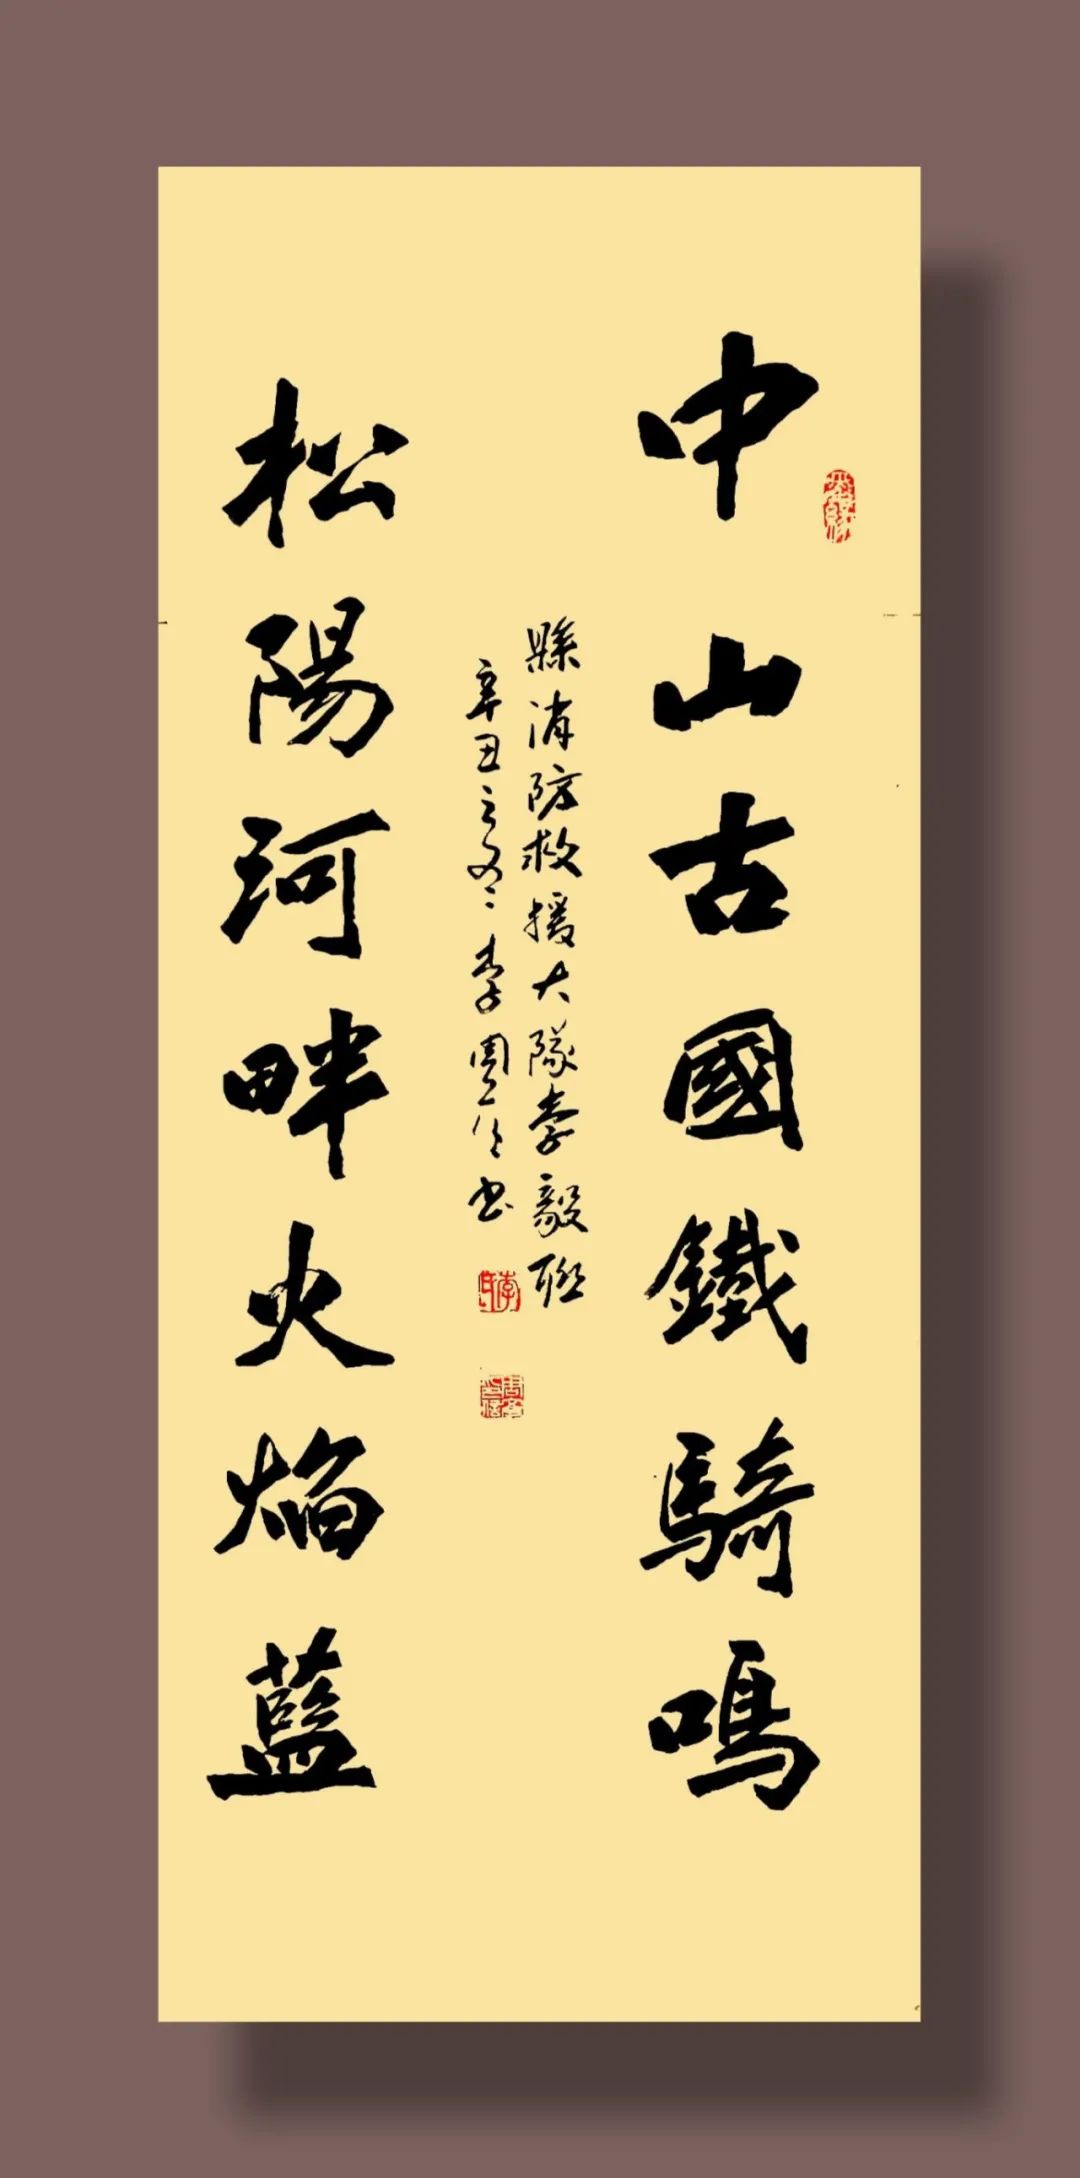 中山古國鐵騎鳴
縣消防救援大隊李毅聯
辛丑之冬李周住書
松陽河畔火焰藍